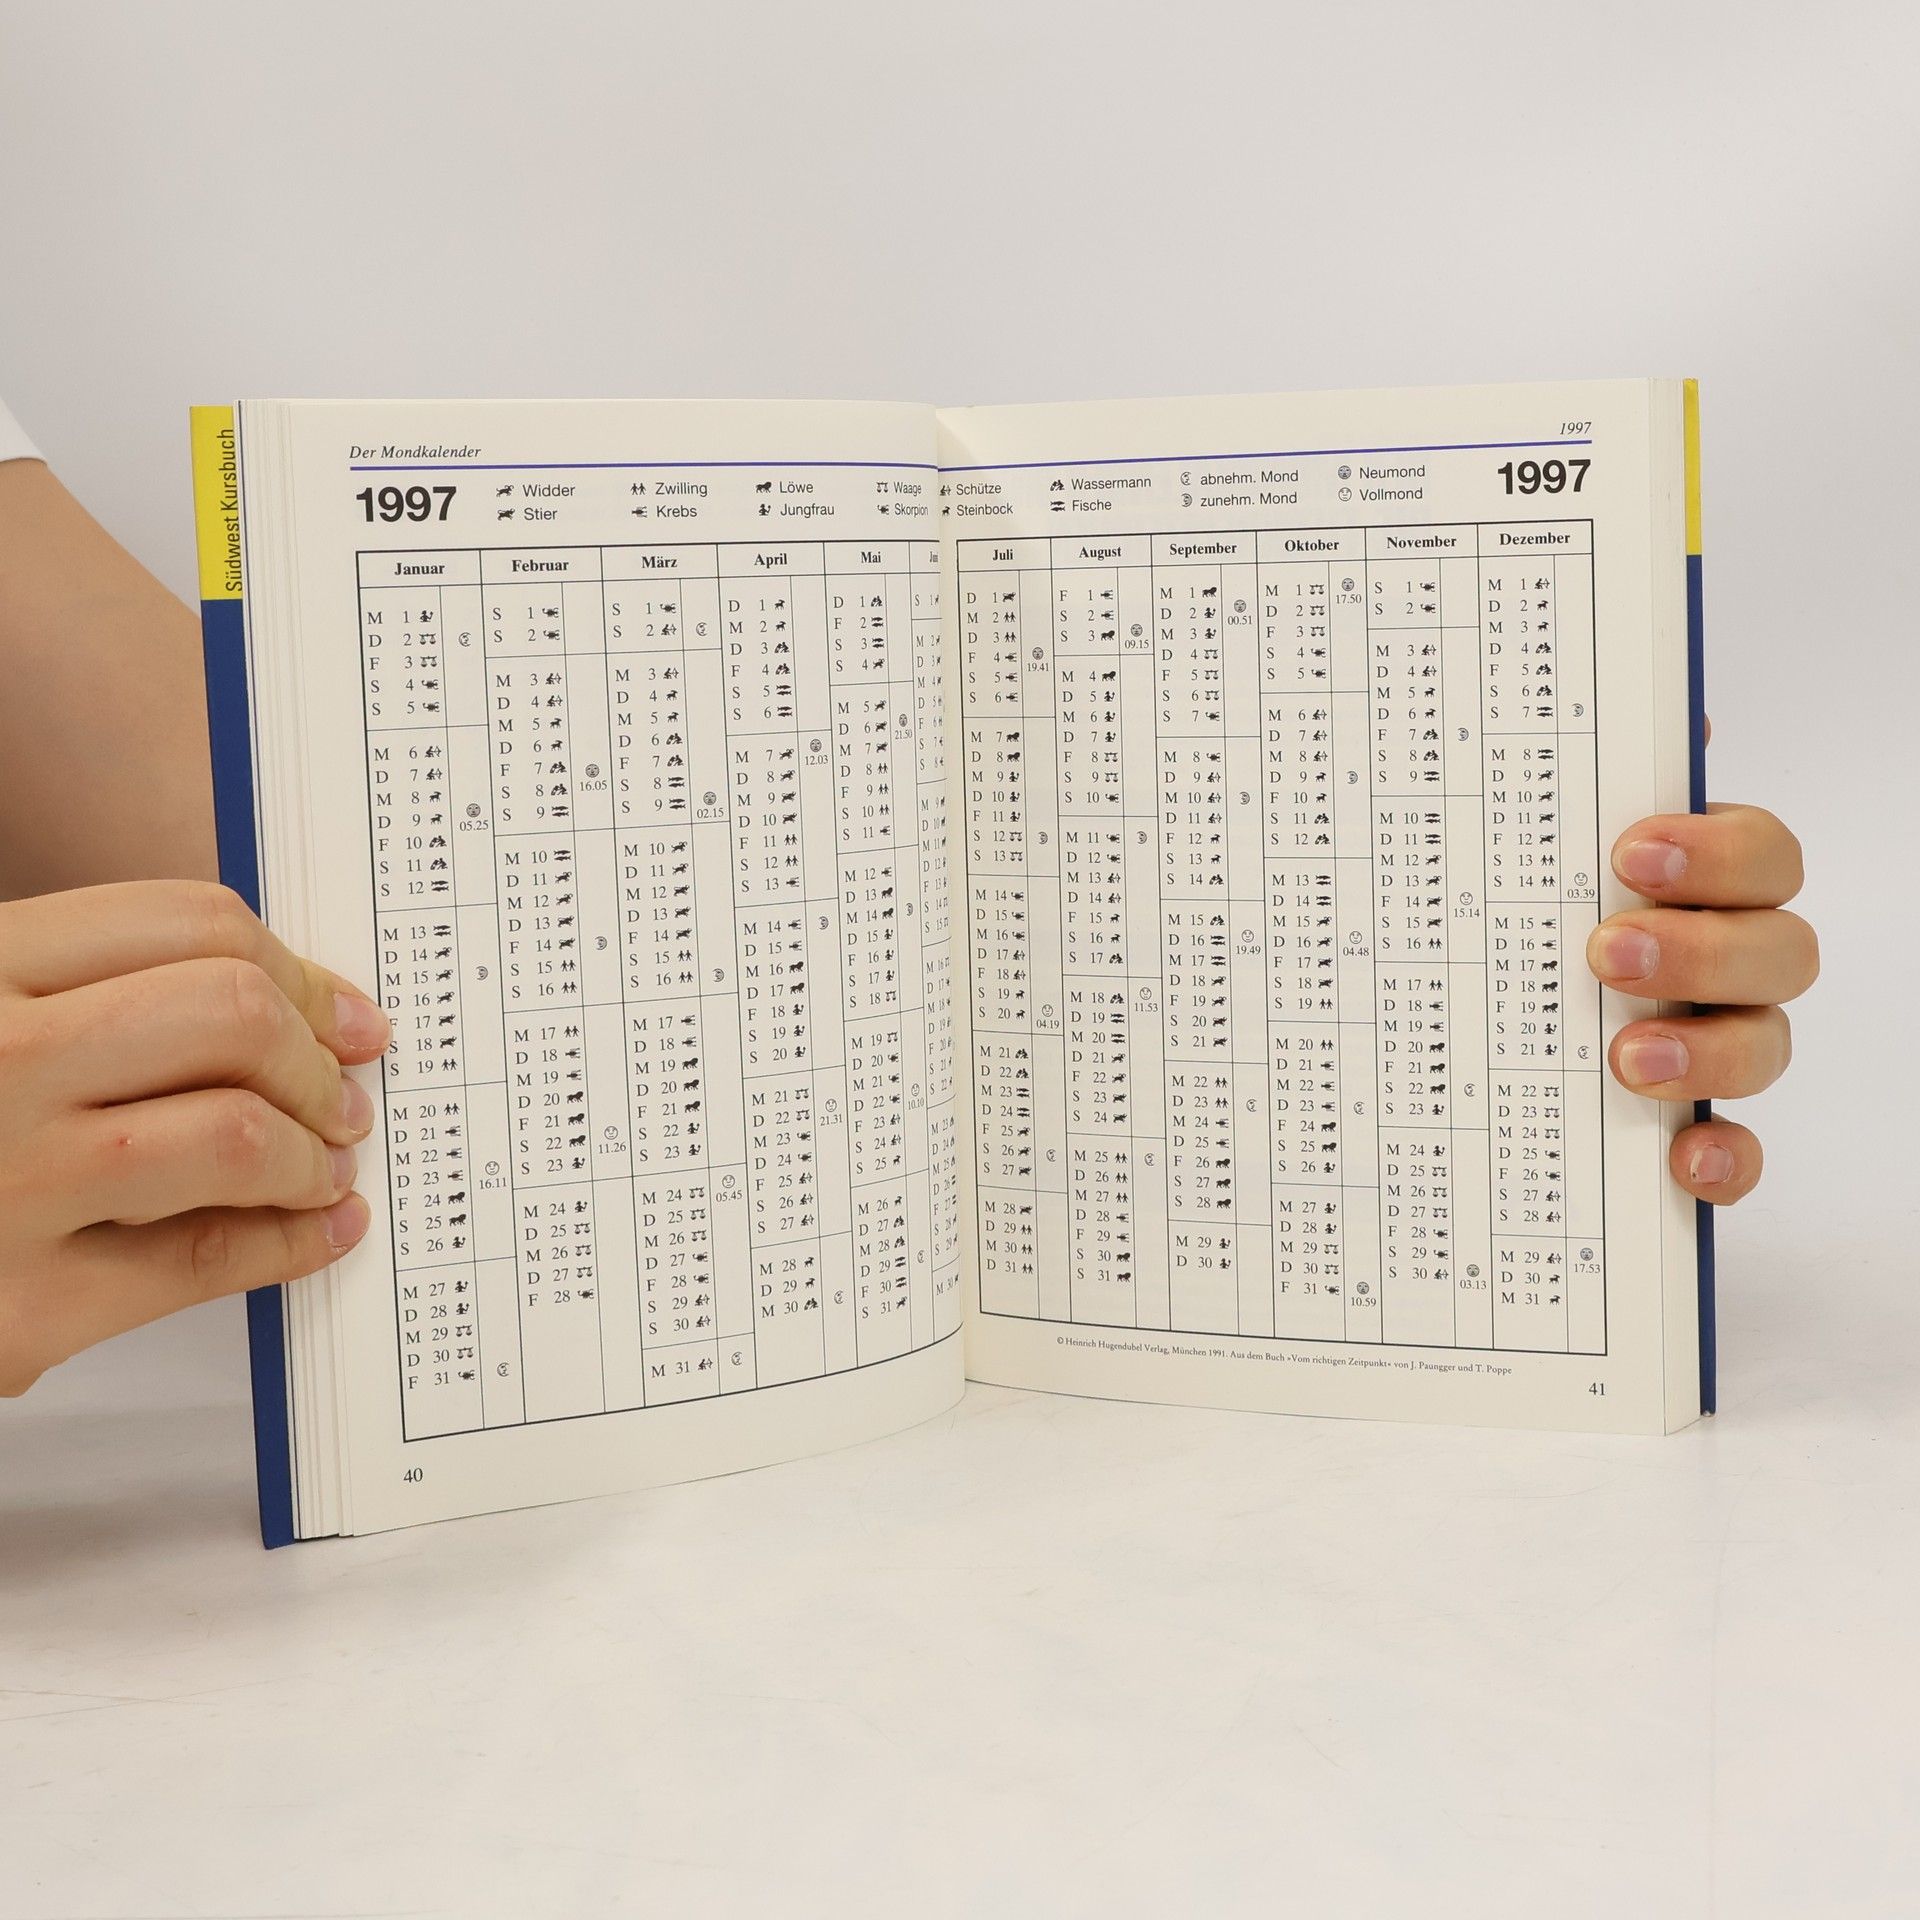 Südwest Kursbuch
Der Mondkalender
1997
Widder
Zwilling
Löwe
Waage
Stier
Krebs
Jungfrau
Skorpion
Januar
M 1
D 2
F 3
S 4
S 5
M 6
D 7
M 8
D 9 05.25
F 10
S 11
S 12
M 13
D 14
M 15
D 16
F 17
S 18
S 19
M 20
D 21
M 22
D 23 16.11
F 24
S 25
S 26
M 27
D 28
M 29
D 30
F 31
Februar
S 1
S 2
M 3
D 4
M 5
D 6
F 7 16.05
S 8
S 9
M 10
D 11
M 12
D 13
F 14
S 15
S 16
M 17
D 18
M 19
D 20
F 21
S 22 11.26
S 23
M 24
D 25
M 26
D 27
F 28
März
S 1
S 2
M 3
D 4
M 5
D 6
F 7
S 8
S 9 02.15
M 10
D 11
M 12
D 13
F 14
S 15
S 16
M 17
D 18
M 19
D 20
F 21
S 22
S 23
M 24 05.45
D 25
M 26
D 27
F 28
S 29
S 30
M 31
April
D 1
M 2
D 3
F 4
S 5
S 6
M 7 12.03
D 8
M 9
D 10
F 11
S 12
S 13
M 14
D 15
M 16
D 17
F 18
S 19
S 20
M 21
D 22 21.31
M 23
D 24
F 25
S 26
S 27
M 28
D 29
M 30
Mai
D 1
F 2
S 3
S 4
M 5
D 6 21.50
M 7
D 8
F 9
S 10
S 11
M 12
D 13
M 14
D 15
F 16
S 17
S 18
M 19
D 20
M 21
D 22 10.10
F 23
S 24
S 25
M 26
D 27
M 28
D 29
F 30
S 31
Jun
S 1
M 2
D 3
M 4
D 5
F 6
S 7
S 8
M 9
D 10
M 11
D 12
F 13
S 14
S 15
M 16
D 17
M 18
D 19
F 20
S 21
S 22
M 23
D 24
M 25
D 26
F 27
S 28
S 29
M 30
40
1997
Schütze
Wassermann
abnehm. Mond
Neumond
Steinbock
Fische
zunehm. Mond
Vollmond
1997
Juli
D 1
M 2
D 3
F 4 19.41
S 5
S 6
M 7
D 8
M 9
D 10
F 11
S 12
S 13
M 14
D 15
M 16
D 17
F 18
S 19
S 20 04.19
M 21
D 22
M 23
D 24
F 25
S 26
S 27
M 28
D 29
M 30
D 31
August
F 1
S 2
S 3 09.15
M 4
D 5
M 6
D 7
F 8
S 9
S 10
M 11
D 12
M 13
D 14
F 15
S 16
S 17
M 18 11.53
D 19
M 20
D 21
F 22
S 23
S 24
M 25
D 26
M 27
D 28
F 29
S 30
S 31
September
M 1
D 2 00.51
M 3
D 4
F 5
S 6
S 7
M 8
D 9
M 10
D 11
F 12
S 13
S 14
M 15
D 16 19.49
M 17
D 18
F 19
S 20
S 21
M 22
D 23
M 24
D 25
F 26
S 27
S 28
M 29
D 30
Oktober
M 1 17.50
D 2
F 3
S 4
S 5
M 6
D 7
M 8
D 9
F 10
S 11
S 12
M 13
D 14
M 15
D 16 04.48
F 17
S 18
S 19
M 20
D 21
M 22
D 23
F 24
S 25
S 26
M 27
D 28
M 29
D 30
F 31 10.59
November
S 1
S 2
M 3
D 4
M 5
D 6
F 7
S 8
S 9
M 10
D 11
M 12
D 13
F 14 15.14
S 15
S 16
M 17
D 18
M 19
D 20
F 21
S 22
S 23
M 24
D 25
M 26
D 27
F 28
S 29
S 30 03.13
Dezember
M 1
D 2
M 3
D 4
F 5
S 6
S 7
M 8
D 9
M 10
D 11
F 12
S 13
S 14 03.39
M 15
D 16
M 17
D 18
F 19
S 20
S 21
M 22
D 23
M 24
D 25
F 26
S 27
S 28
M 29 17.53
D 30
M 31
© Heinrich Hugendubel Verlag, München 1991. Aus dem Buch »Vom richtigen Zeitpunkt« von J. Paungger und T. Poppe
41